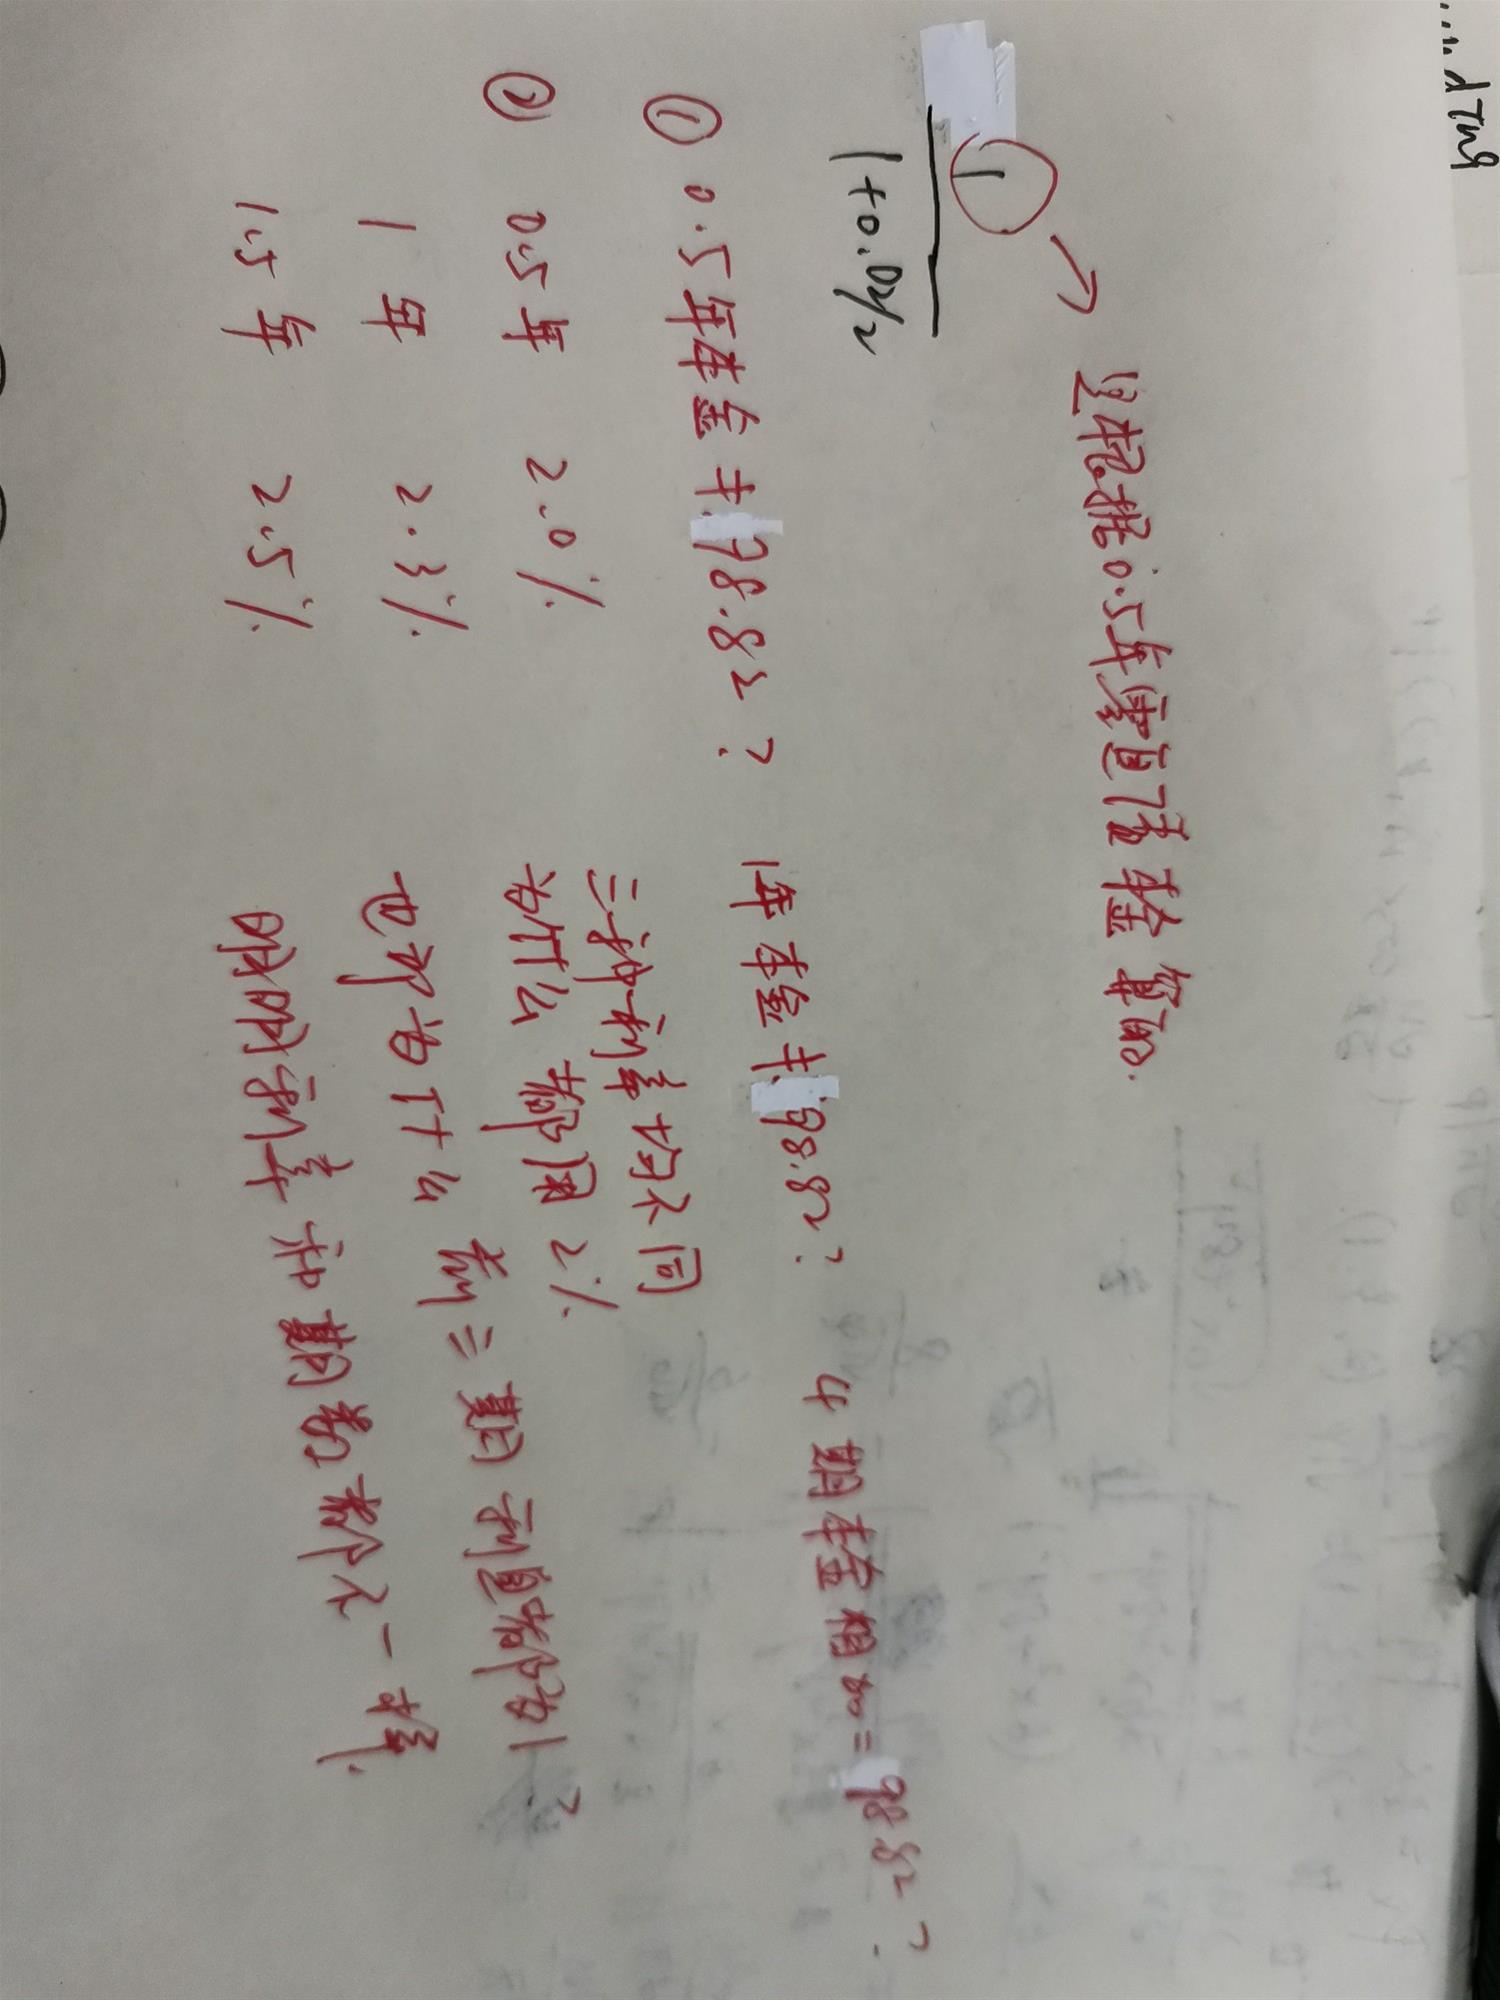 1
1+0.02/2
是根据0.5年零息债本金算的.
① 0.5年本金 98.82? 1年本金 98.82? 4期本金相加=98.82?
三种利率均不同
② 0.5年 2.0% 为什么都用2%
1年 2.3% 也即为什么 三期利息都为1?
1.5年 2.5% 明明利率和期数都不一样.